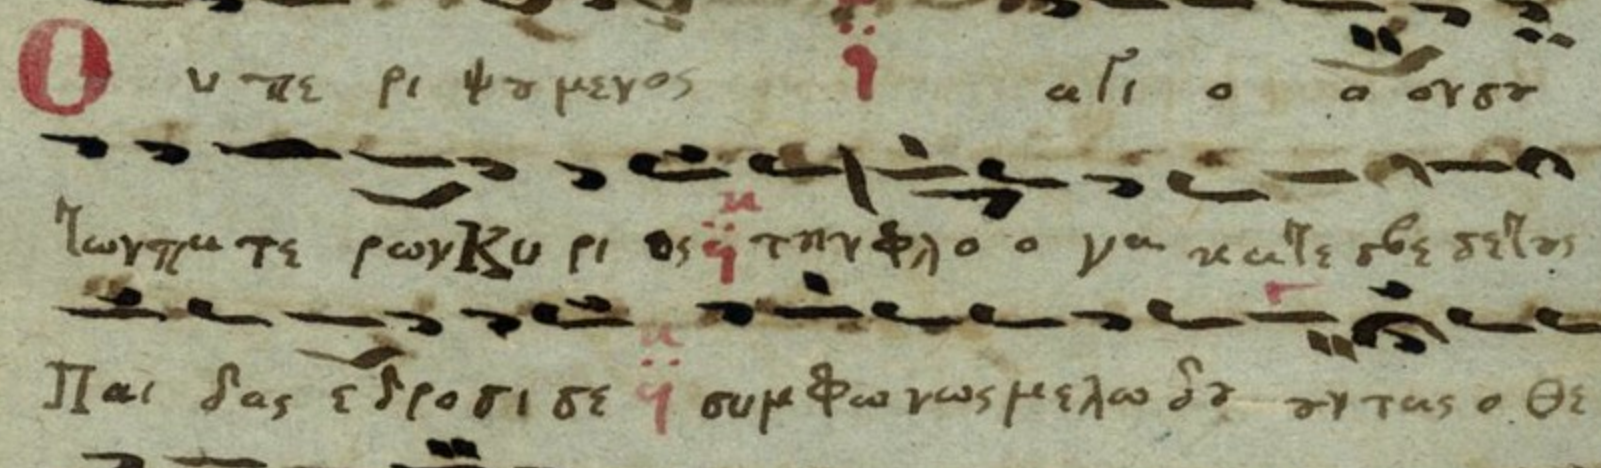 Ο υ πε ρι ψυ μενος α γι ο ο ονσου
των πα τε ρων Κυ ρι ος την φλο ο γα κα τε σβε σε τους
Παι δας ε δρο σι σε συμ φω νως με λω δου ουν τας ο Θε